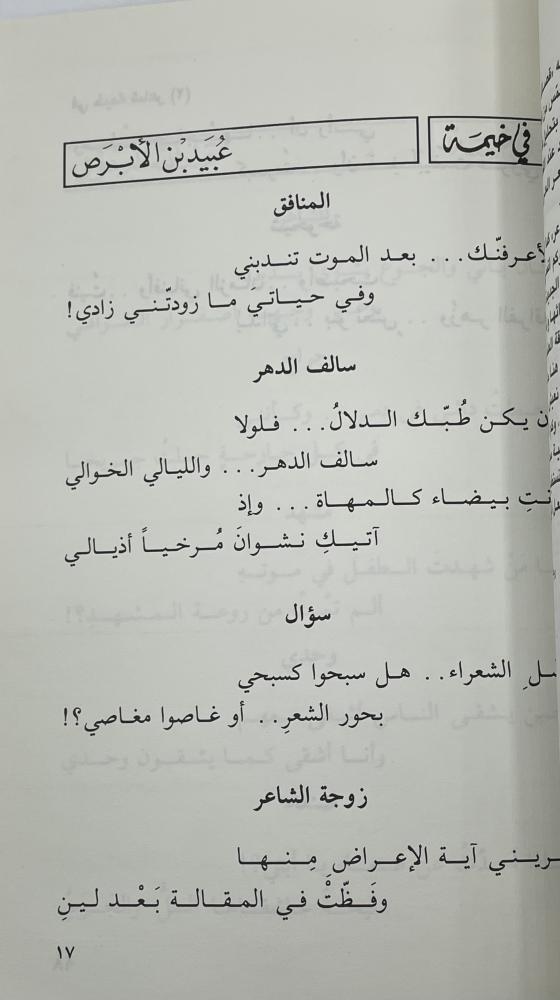 في خيمة
عُبَيد بْن الأبْرَص
المنافق
لأعرفنّك... بعد الموت تندبني
وفي حياتيَ ما زودتّني زادي!
سالف الدهر
ن يكن طُبّك الدلالُ... فلولا
سالف الدهر... والليالي الخوالي
نتِ بيضاء كالمهاة... وإذ
آتيكِ نشوانَ مُرخياً أذيالي
سؤال
سلِ الشعراء.. هل سبحوا كسبحي
بحور الشعرِ.. أو غاصوا مغاصي؟!
زوجة الشاعر
ريني آية الإعراضِ مِنها
وفَظّتْ في المقالة بَعْد لينِ
١٧